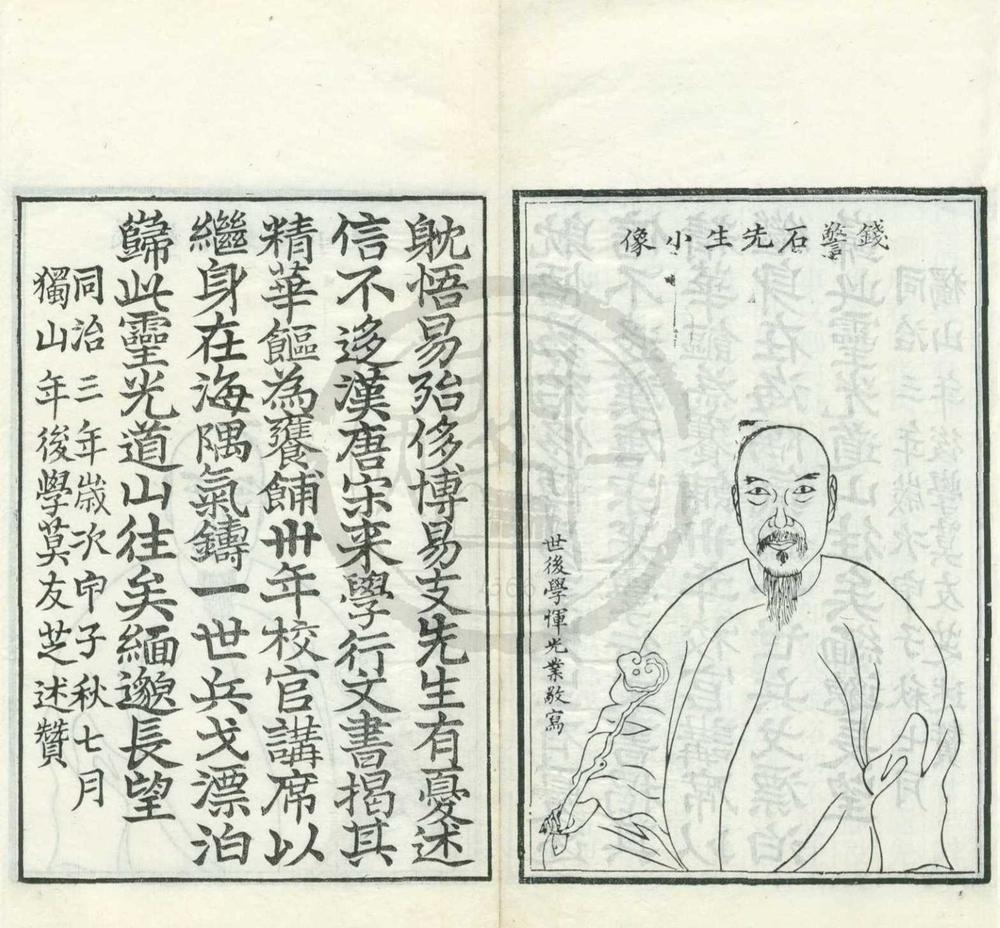 錢警石先生小像
世後學惲光業敬寫
躭悟易殆侈博易支先生有憂述
信不迻漢唐宋来學行文書揭其
精華饇為饔餔卌年校官講席以
繼身在海隅氣鑄一世兵戈漂泊
歸此靈光道山往矣緬邈長望
同治三年歲次甲子秋七月
獨山年後學莫友芝述贊